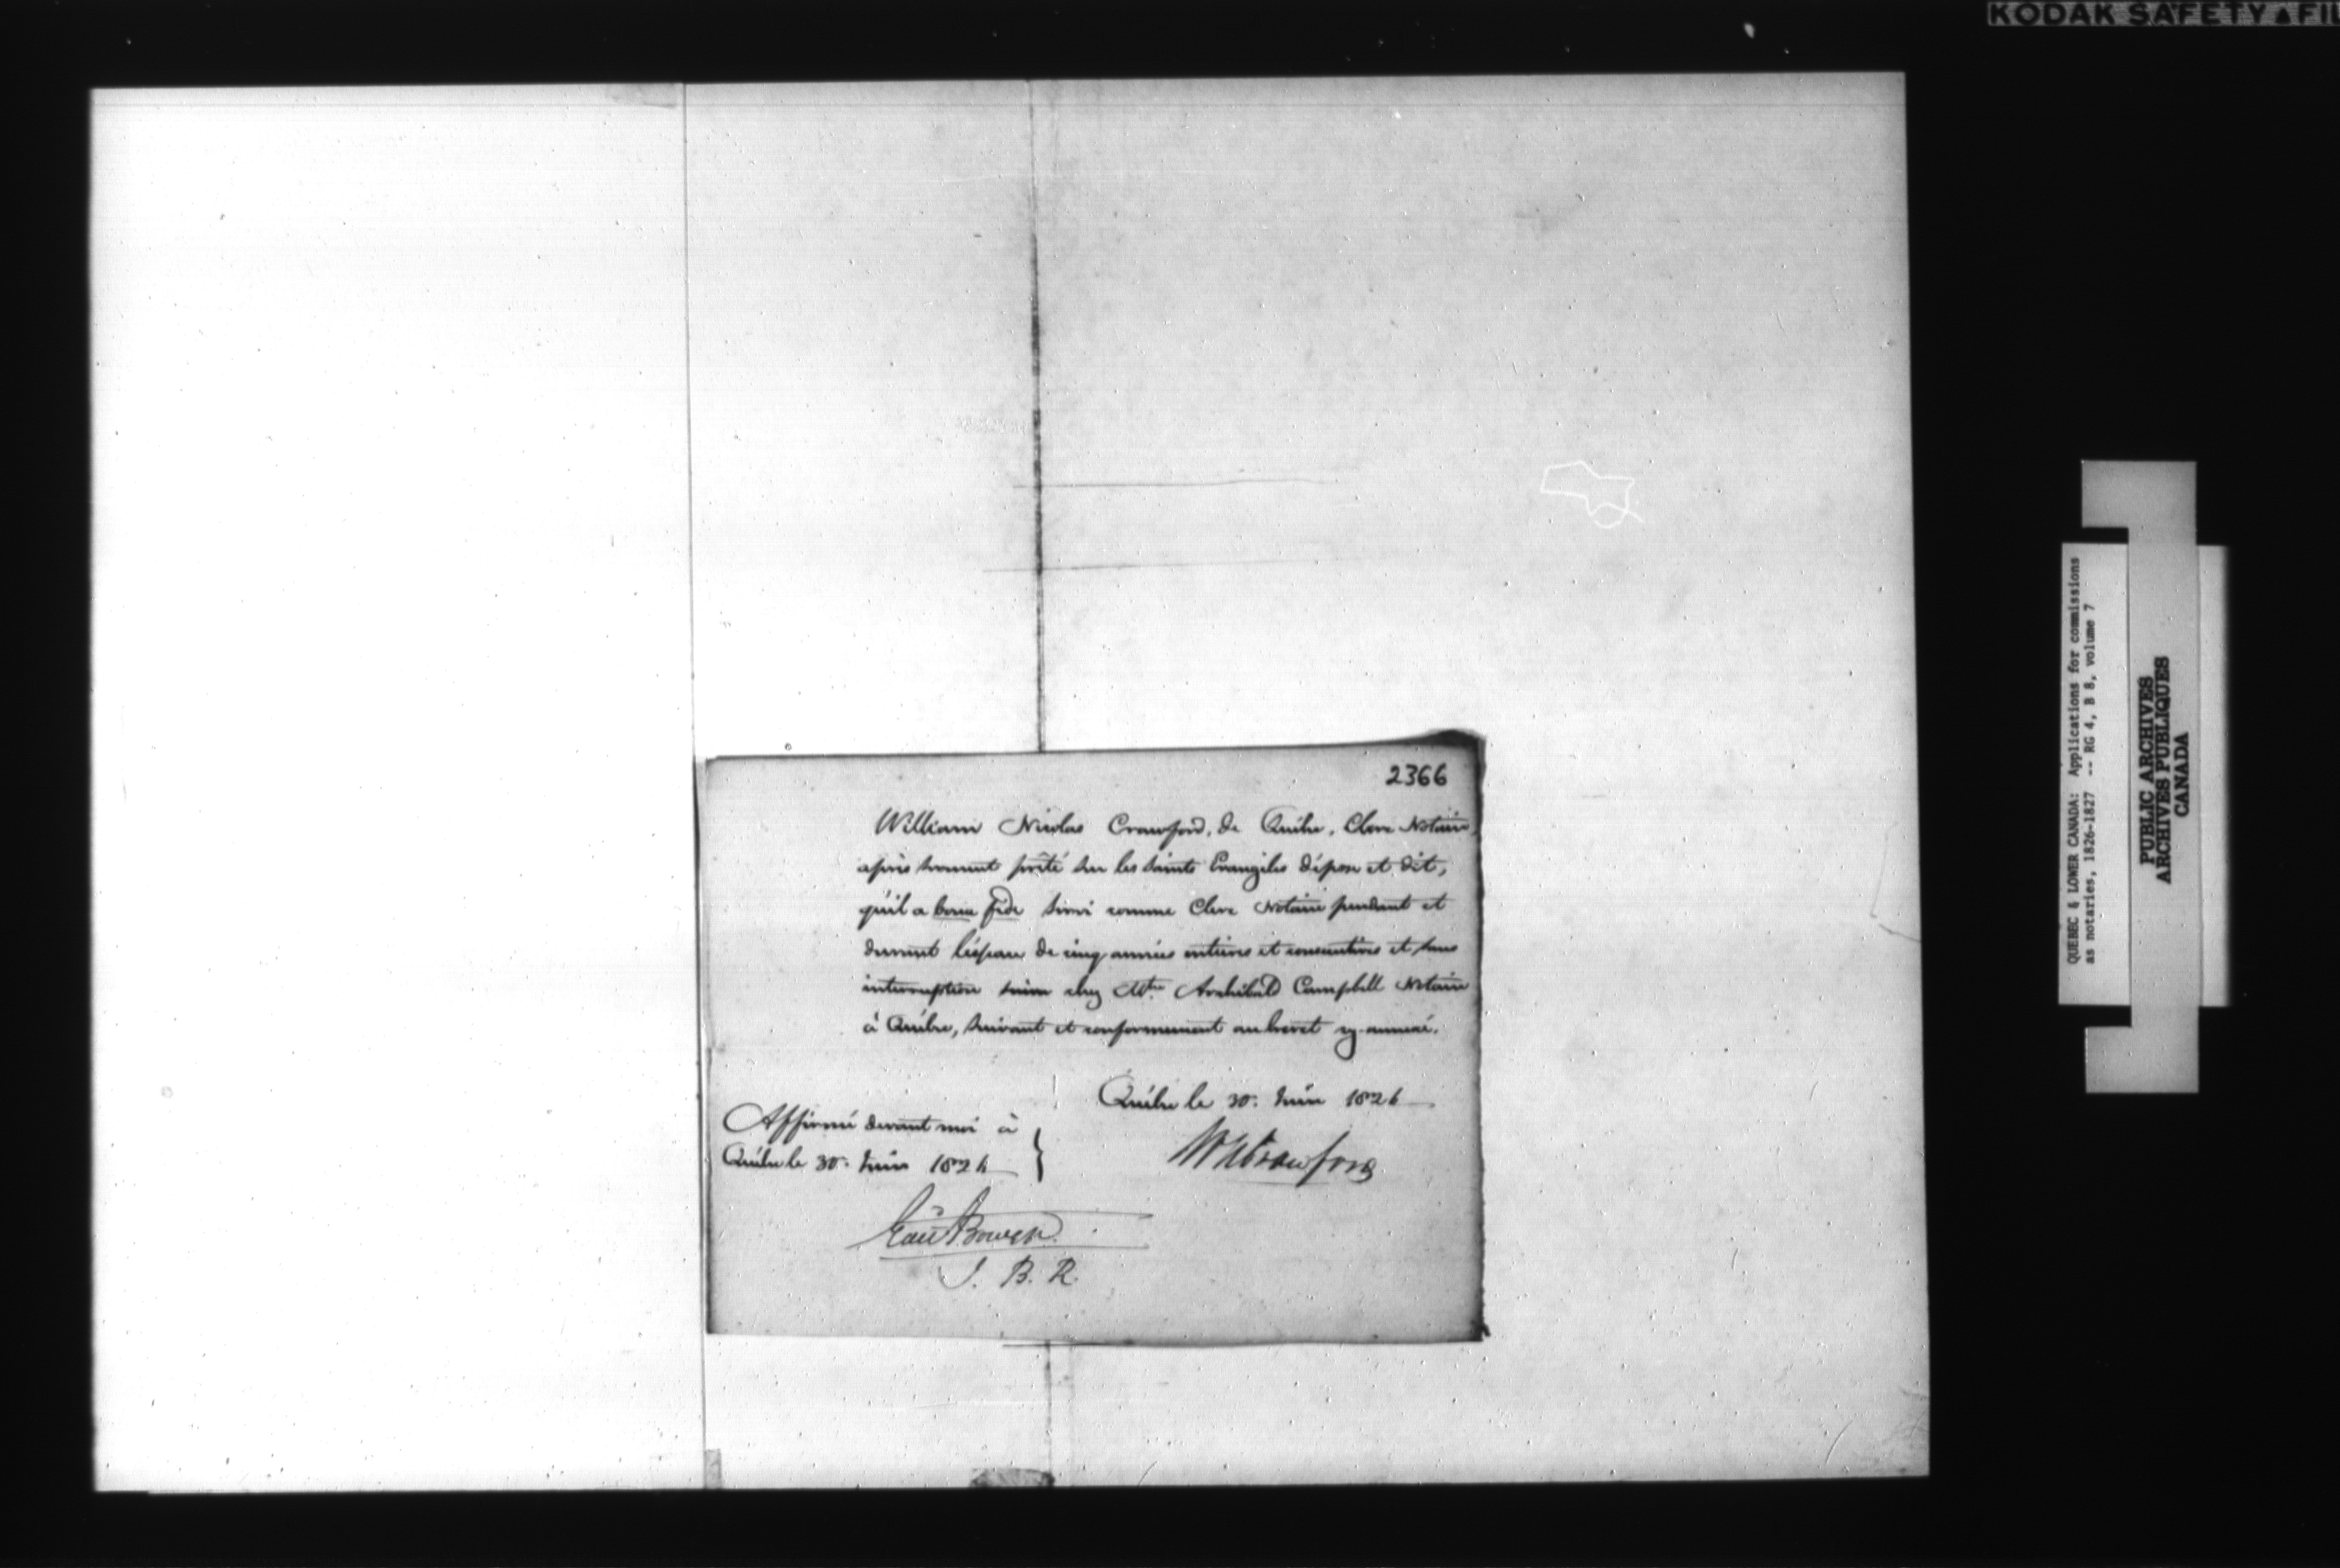 KODAK SAFETY FIL
2366
William Nicolas Crawford, de Québec, Clerc Notaire,
après serment prêté sur les saints Evangiles dépose et dit,
qu'il a bona fide servi comme Clerc Notaire pendant et
durant l'éspace de cinq années entières et consecutives et sans
interruption chez Mtre Archibald Campbell Notaire
à Québec, suivant et conformement au brevet cy-annexé.
Québec le 30. Juin 1826
Affirmé devant moi à
Québec le 30. Juin 1826
WNCrawford
Edwd Bowen
J. B. R.
QUEBEC & LOWER CANADA: Applications for commissions
as notaries, 1826-1827 -- RG 4, B 8, volume 7
PUBLIC ARCHIVES
ARCHIVES PUBLIQUES
CANADA